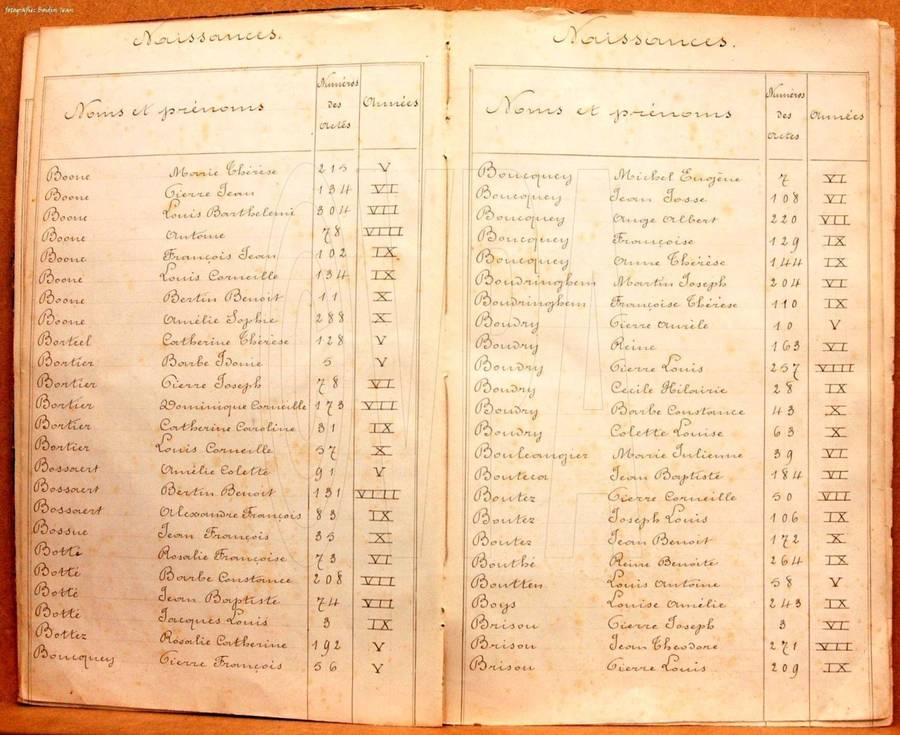 fotografie: Boidin Jean
Naissances.
Noms et prénoms Numéros des actes Années
Boone Marie Thérèse 215 V
Boone Pierre Jean 134 VI
Boone Louis Barthelemi 304 VII
Boone Antoine 78 VIII
Boone François Jean 102 IX
Boone Louis Corneille 134 IX
Boone Bertin Benoit 11 X
Boone Amélie Sophie 288 X
Borteel Catherine Thérèse 128 V
Bortier Barbe Idonie 5 V
Bortier Pierre Joseph 78 VI
Bortier Dominique Corneille 173 VII
Bortier Catherine Caroline 31 IX
Bortier Louis Corneille 57 X
Bossaert Amélie Colette 91 V
Bossaert Bertin Benoit 131 VIII
Bossaert Alexandre François 83 IX
Bossue Jean François 35 X
Botte Rosalie Françoise 73 VI
Botte Barbe Constance 208 VII
Botte Jean Baptiste 74 VII
Botte Jacques Louis 3 IX
Bottez Rosalie Catherine 192 V
Boucquey Pierre François 56 V
Naissances.
Noms et prénoms Numéros des actes Années
Boucquey Michel Eugène 7 VI
Boucquey Jean Josse 108 VI
Boucquey Ange Albert 220 VII
Boucquey Françoise 129 IX
Boucquey Anne Thérèse 144 IX
Boudringhem Martin Joseph 204 VI
Boudringhem Françoise Thérèse 110 IX
Boudry Pierre Aurèle 10 V
Boudry Reine 163 VI
Boudry Pierre Louis 257 VIII
Boudry Cecile Hilairie 28 IX
Boudry Barbe Constance 43 X
Boudry Colette Louise 63 X
Bouleanguer Marie Julienne 39 VI
Bouteca Jean Baptiste 184 VI
Boutez Pierre Corneille 50 VII
Boutez Joseph Louis 106 IX
Boutez Jean Benoit 172 X
Bouthé Reine Benoite 264 IX
Boutten Louis Antoine 58 V
Boys Louise Amélie 243 IX
Brisou Pierre Joseph 3 VI
Brisou Jean Theodore 271 VII
Brisou Pierre Louis 209 IX